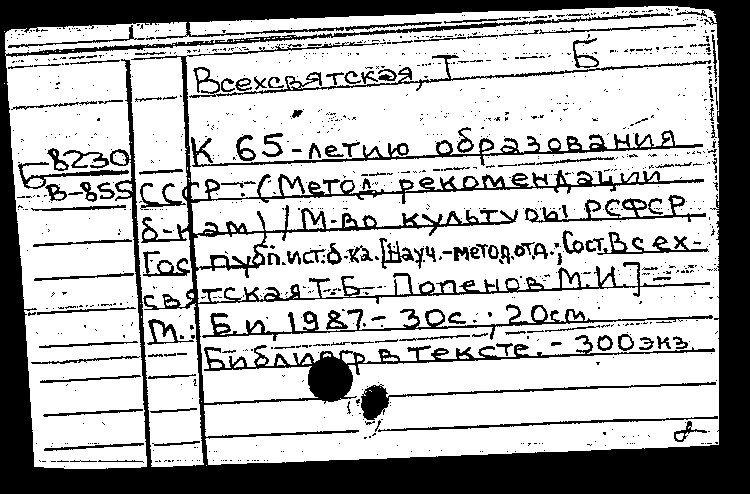 Всехсвятская, Т Б
Б 8230
В-855
К 65-летию образования
СССР : (Метод. рекомендации
б-кам) / М-во культуры РСФСР,
Гос. публ. ист. б-ка. [Науч.-метод. отд.; Сост. Всех-
святская Т.Б., Попенов М.И.] -
М.: Б.и, 1987. - 30с.; 20см.
Библиогр в тексте. - 300экз.